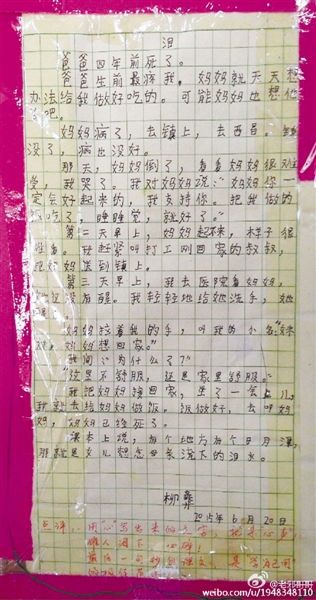 泪
爸爸四年前死了。
爸爸生前最疼我，妈妈就天天想
办法给我做好吃的。可能妈妈也想他
了吧。
妈妈病了，去镇上，去西昌，钱
没了，病也没好。
那天，妈妈倒了，看看妈妈很难
受，我哭了。我对妈妈说："妈妈你一
定会好起来的，我支持你。把我做的
饭吃了，睡睡觉，就好了。"
第二天早上，妈妈起不来，样子很
难看。我赶紧叫打工刚回家的叔叔，
把妈妈送到镇上。
第三天早上，我去医院看妈妈，
她还没有醒。我轻轻地给她洗手，她
醒
妈妈拉着我的手，叫我的小名："妹
妹，妈妈想回家。"
我问："为什么了？"
"这里不舒服，还是家里舒服。"
我把妈妈接回家，坐了一会儿，
我就去给妈妈做饭。饭做好，去叫妈
妈，妈妈已经死了。
课本上说，有个地方有个日月潭，
那就是女儿想念母亲流下的泪水。
柳彝
2015年6月20日
点评：用"心"写出来的文字
催人泪下
最后一句
@老邪唧唧
weibo.com/u/1948348110